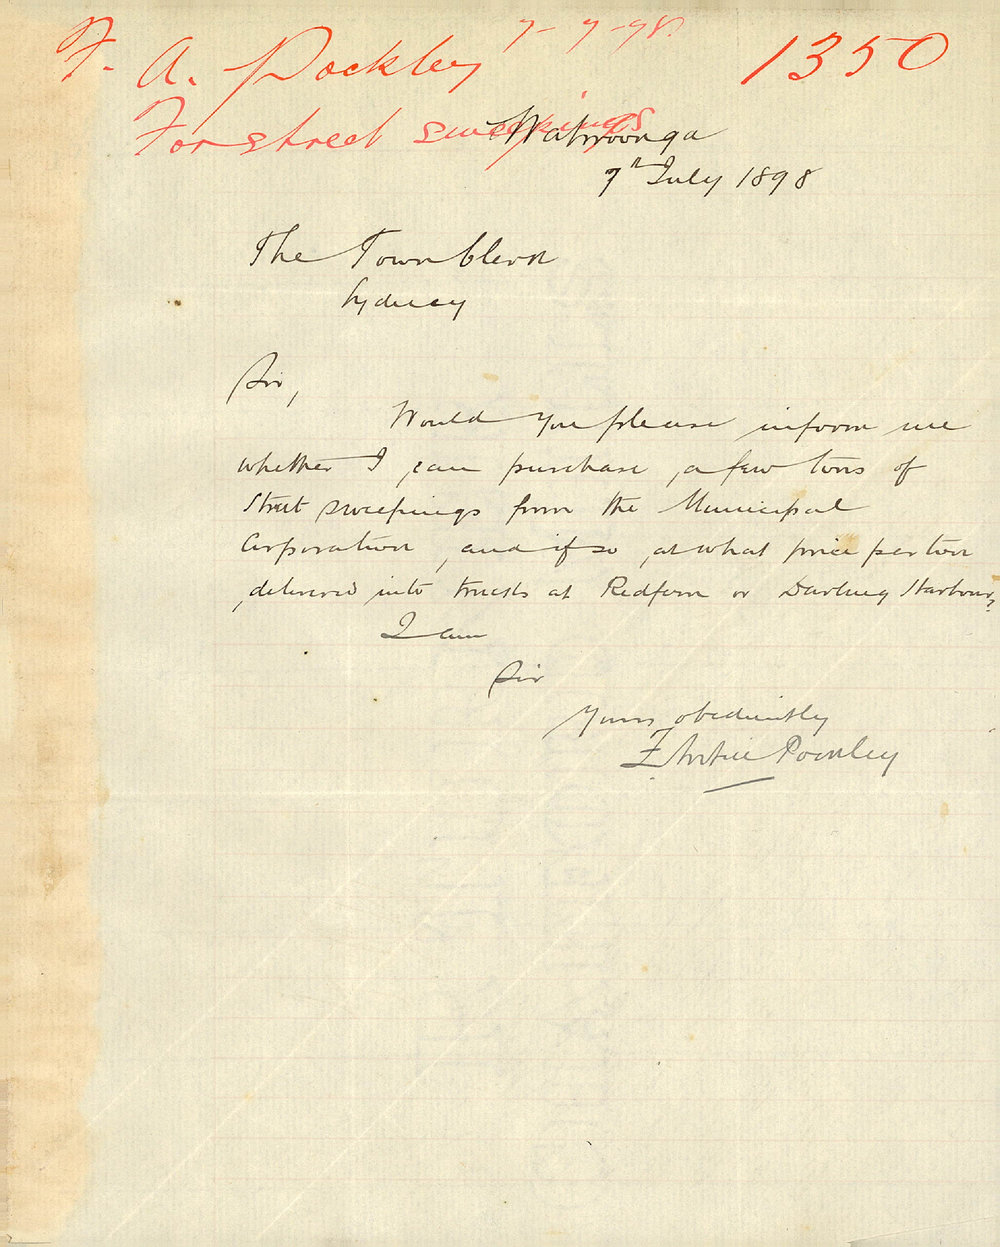 7-7-98
F. A. Pockley 1350
For street sweepings
Wahroonga
7th July 1898
The Town Clerk
Sydney
Sir,
Would you please inform me
whether I can purchase a few tons of
Street sweepings from the Municipal
Corporation, and if so, at what price per ton
delivered into trucks at Redfern or Darling Harbour?
I am
Sir
Yours obediently
F Antill Pockley